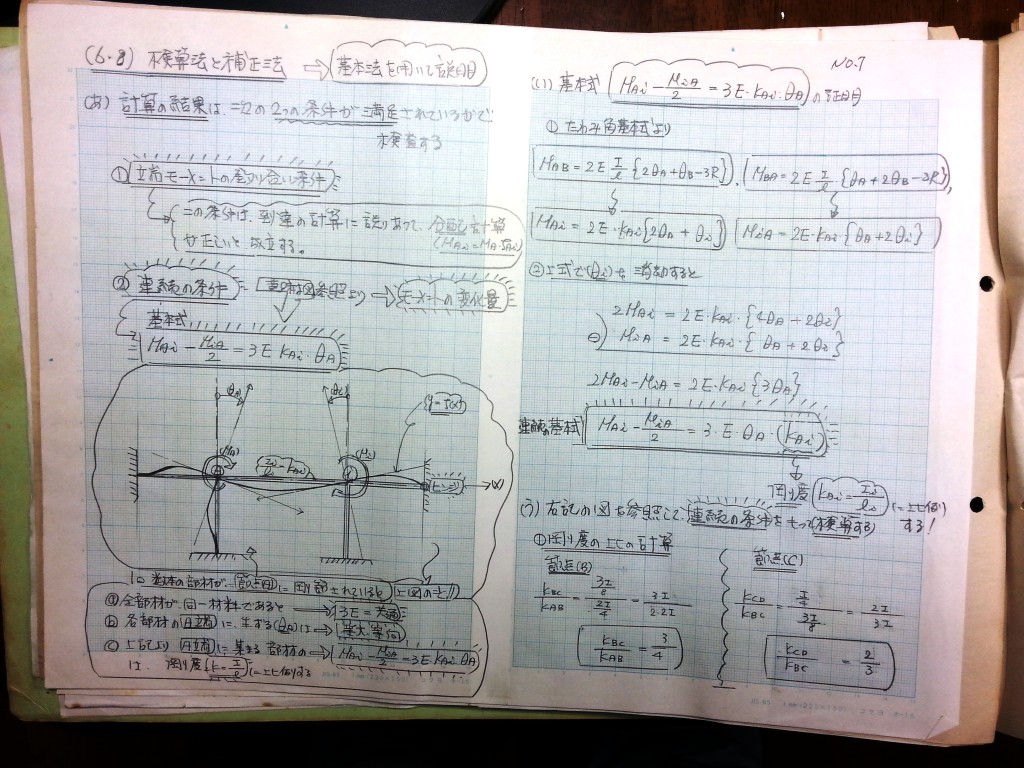 (6.8) 検算法と補正法 → 基本法を用いて説明
(あ) 計算の結果は、二次の2つの条件が満足されているかで
検査する
① 立端モーメントの釣り合い条件
この条件は、到達の計算に誤りあって、分配 計算
(MAi=MA・
が正しいと成立する。
② 連続の条件 = 参照より → モーメントの変化量
基本式
MAi - MiA/2 = 3E・kAi・θA
y=f(x)
(MA)
(Mi)
ヒンジ
x
1つ 数本の部材が、(節点A)に剛節されていると
ⓐ 全部材が、同一材料であると → 3E=
ⓑ 各部材の(A端)に、生ずる(θA)は →
ⓒ 上記より(A端)に集まる部材の → MAi - MiA/2 = 3E kAi θA
は、剛度(k=I/l)に比例する
NO.7
(い) 基本式 MAi - MiA/2 = 3E・kAi・θA の証明
① たわみ角基本式より
MAB = 2E I/l {2θA+θB-3R}, MBA = 2E I/l {θA+2θB-3R},
MAi = 2E・kAi{2θA + θi} MiA = 2E・kAi{θA+2θi}
② 上式で(θi)を消却すると
2MAi = 2E・kAi・{4θA+2θi}
⊖) MiA = 2E・kAi・{θA+2θi}
2MAi-MiA = 2E・kAi{3θA}
連続の基本式 MAi - MiA/2 = 3・E・θA・(kAi)
剛度 (kAi = Ii/li) に比例
する!
(う) 左記の図を参照して、連続の条件をもって(検算する)
① 剛度の比の計算
節点(B) 節点(C)
kBC/kAB = 3I/8 / 2I/4 = 3I/2・2I
kCD/kBC = I/4 / 3I/8 = 2I/3I
kBC/kAB = 3/4
kCD/kBC = 2/3